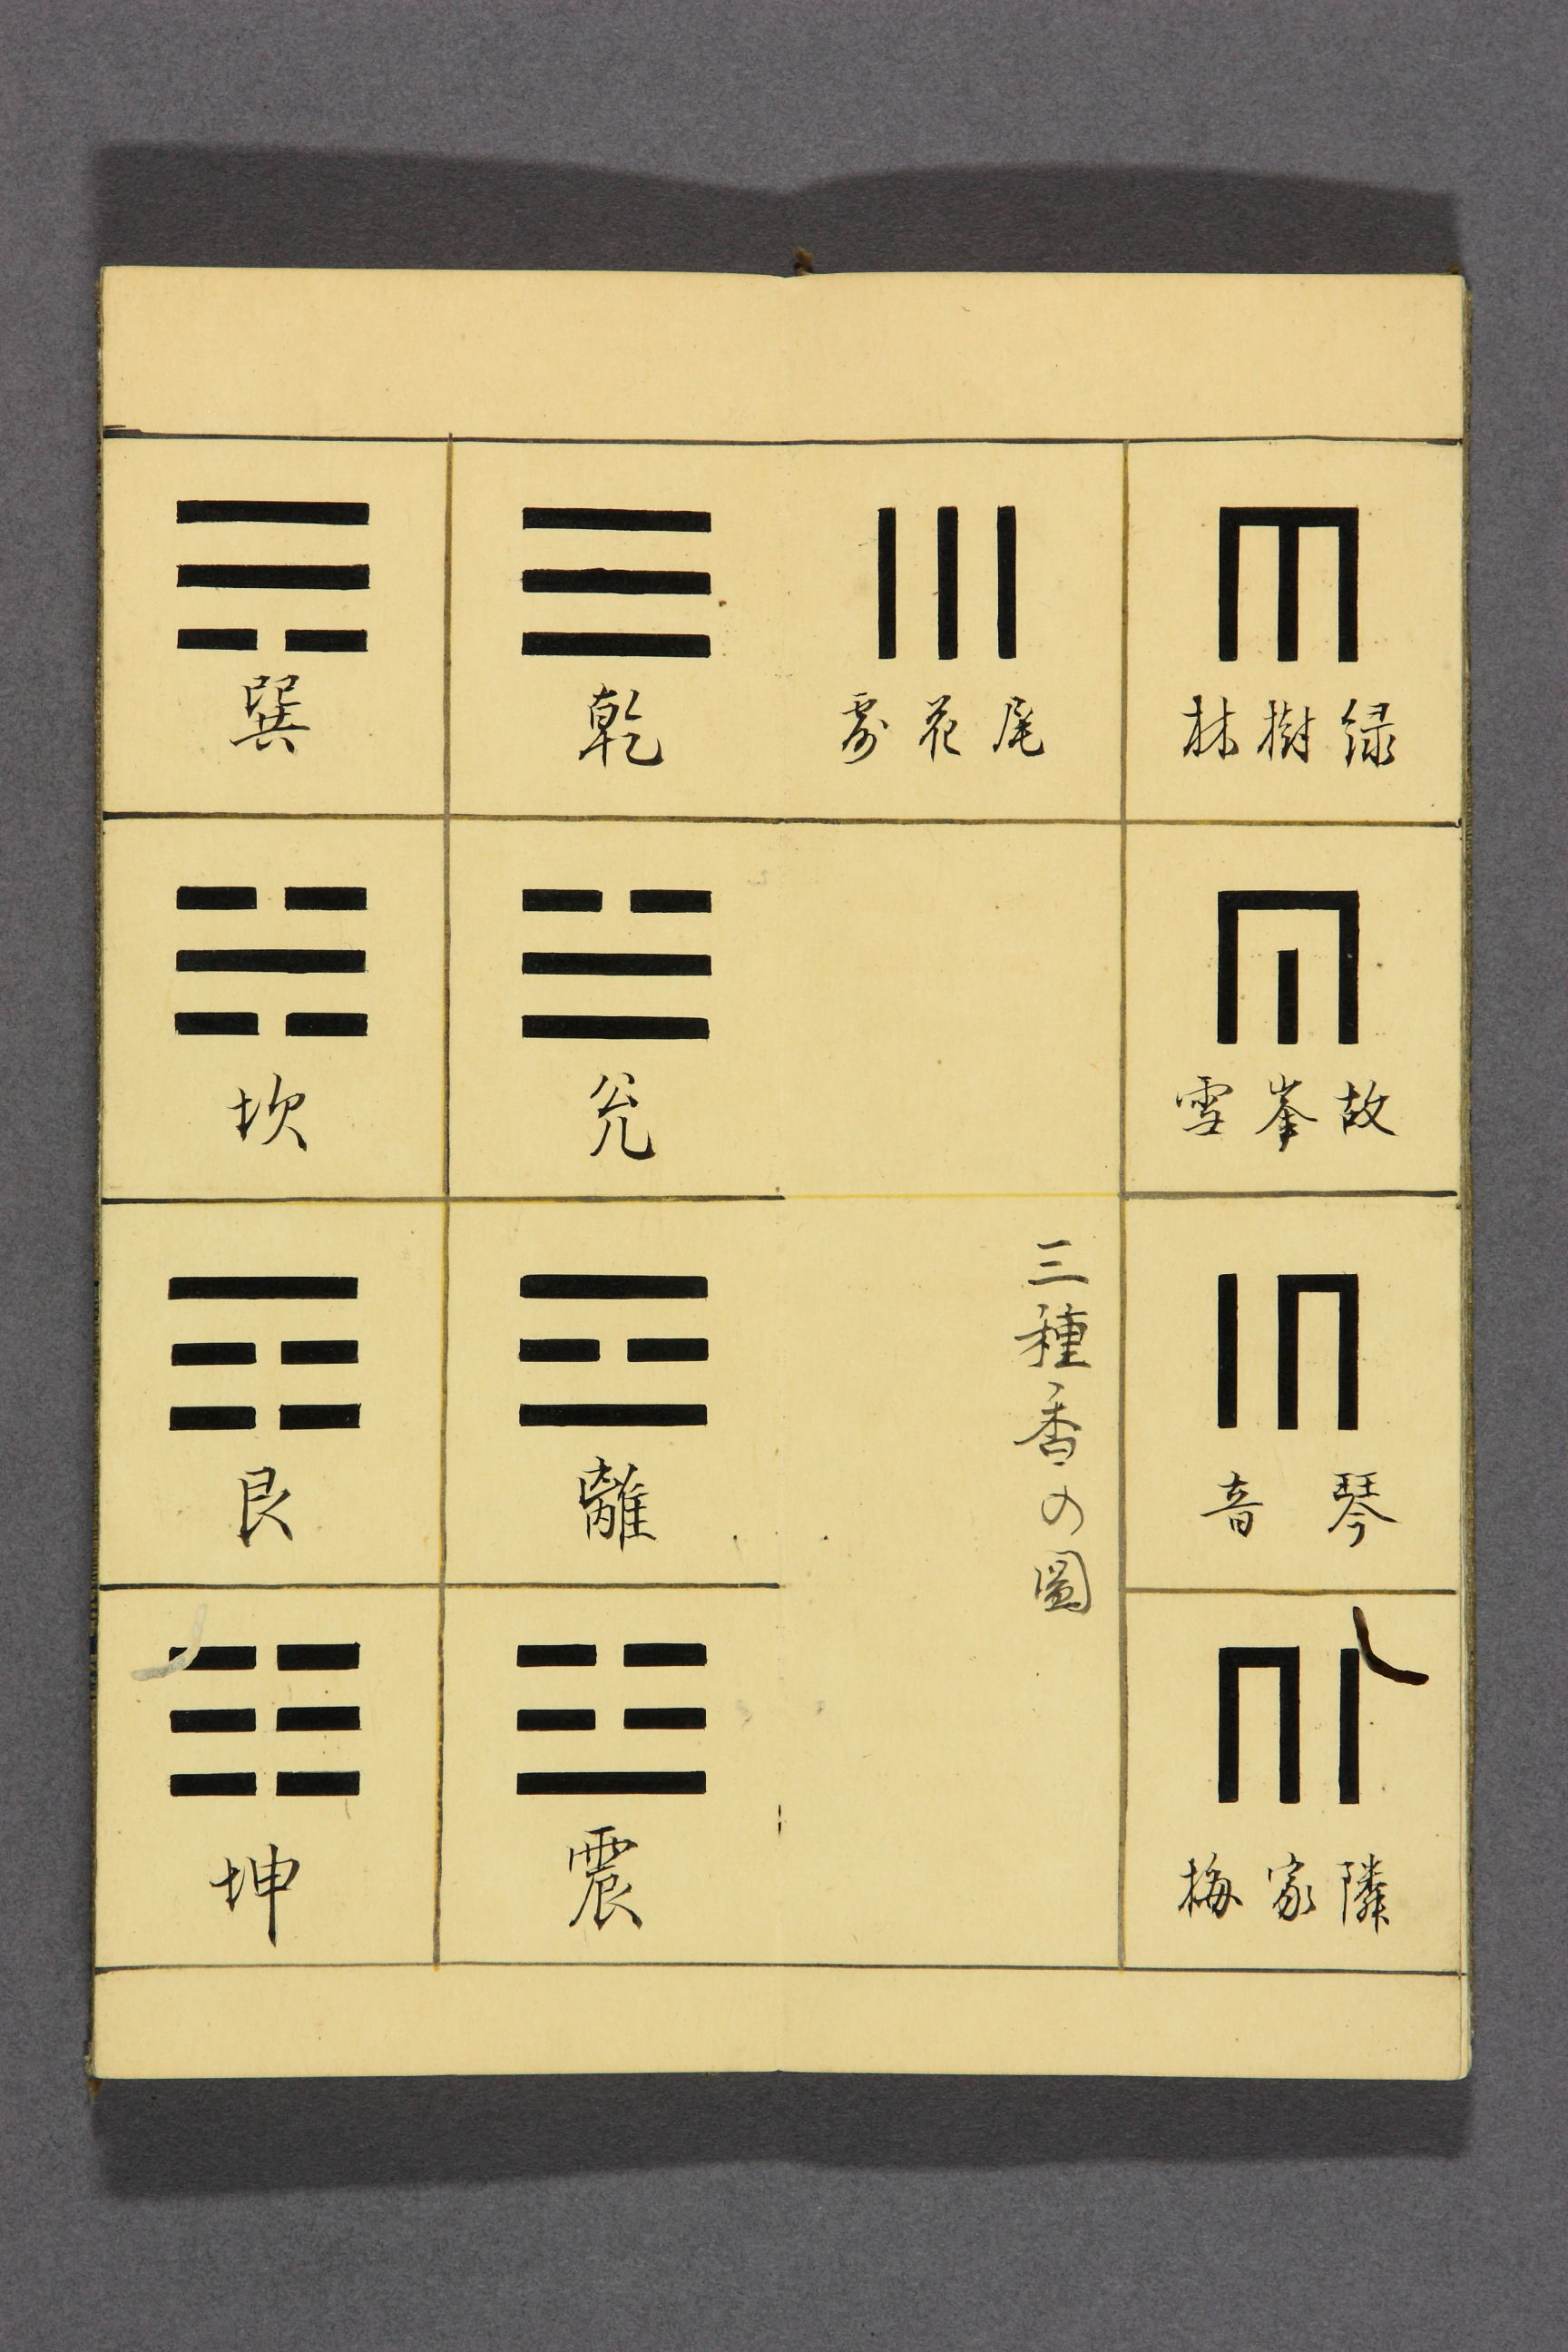 緑樹林
故峯雪
琴音
隣家梅
尾花露
三種香の圖
乾
兌
離
震
巽
坎
艮
坤